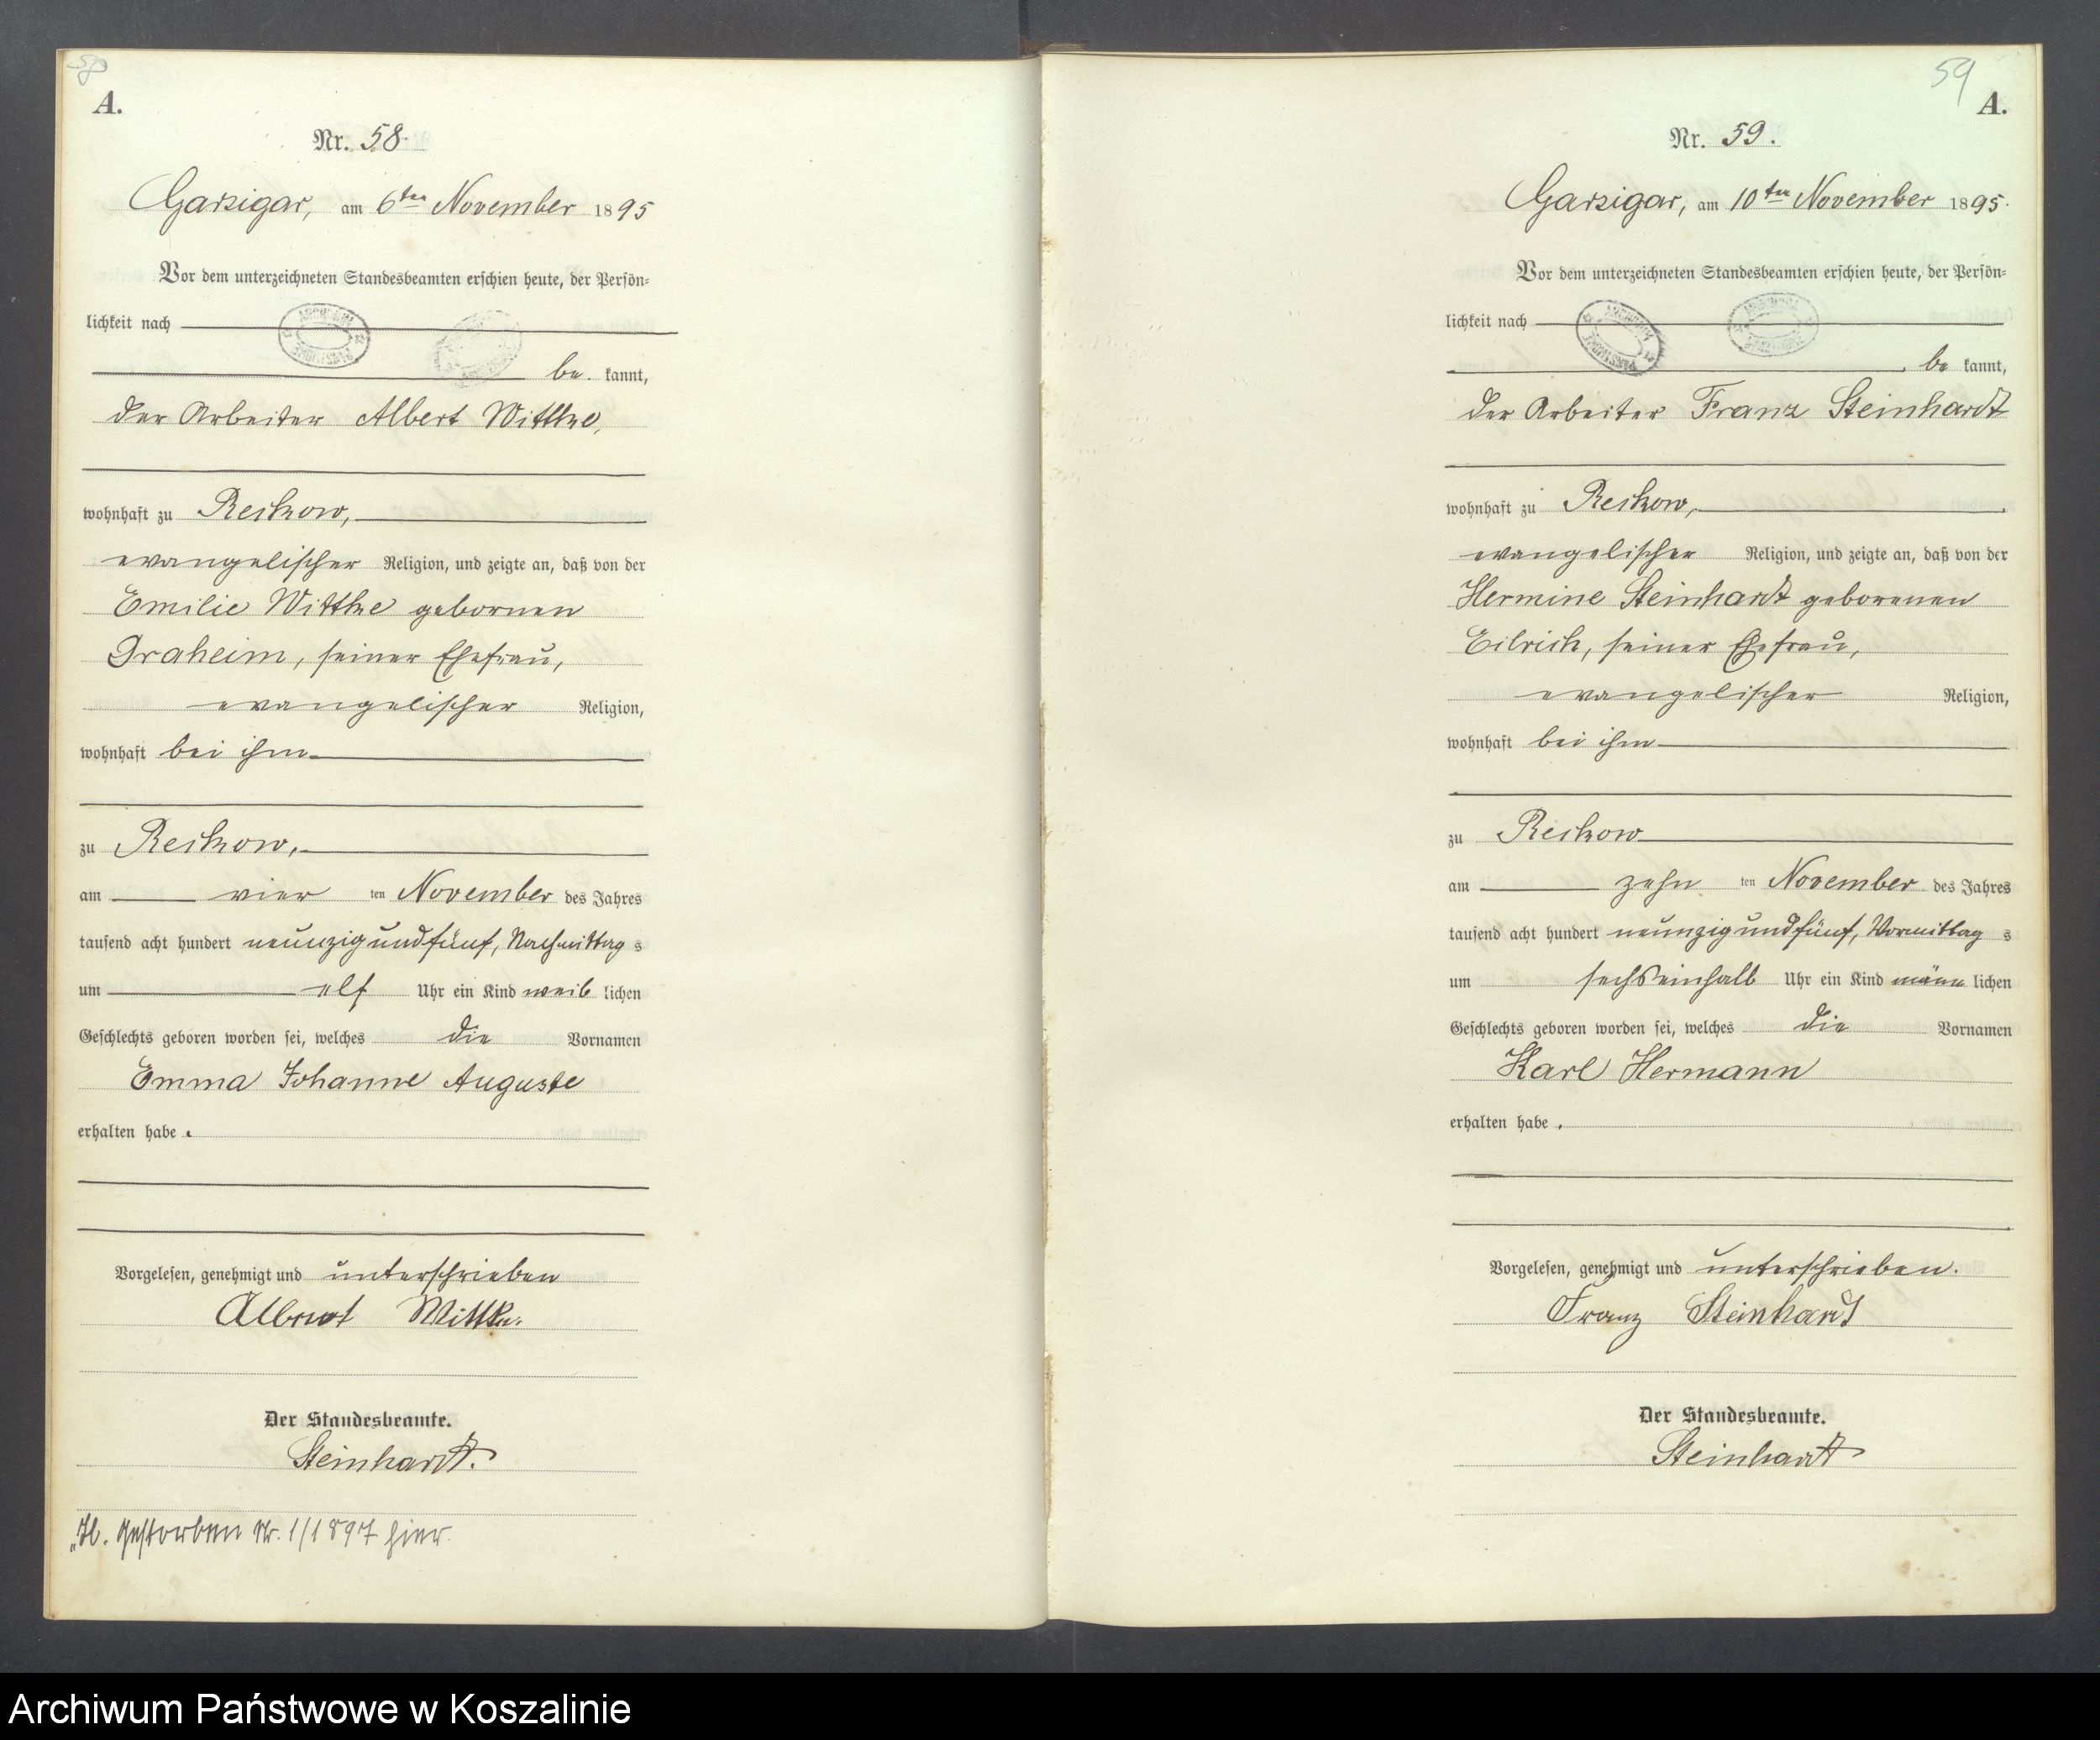 58
A.
Nr. 58.
Garzigar, am 6ten November 1895
Vor dem unterzeichneten Standesbeamten erschien heute, der Persön-
lichkeit nach
be kannt,
der Arbeiter Albert Wittke,
wohnhaft zu Reckow,
evangelischer Religion, und zeigte an, daß von der
Emilie Wittke gebornen
Draheim, seiner Ehefrau,
evangelischer Religion,
wohnhaft bei ihm
zu Reckow,
am vier ten November des Jahres
tausend acht hundert neunzig und fünf, Nachmittag s
um elf Uhr ein Kind weib lichen
Geschlechts geboren worden sei, welches die Vornamen
Emma Johanne Auguste
erhalten habe.
Vorgelesen, genehmigt und unterschrieben
Albert Wittke
Der Standesbeamte.
Steinhardt.
gestorben Nr. 1/1897 hier.
59
A.
Nr. 59.
Garzigar, am 10ten November 1895.
Vor dem unterzeichneten Standesbeamten erschien heute, der Persön-
lichkeit nach
be kannt,
der Arbeiter Franz Steinhardt
wohnhaft zu Reckow,
evangelischer Religion, und zeigte an, daß von der
Hermine Steinhardt geborenen
Eilrich, seiner Ehefrau,
evangelischer Religion,
wohnhaft bei ihm
zu Reckow
am zehn ten November des Jahres
tausend acht hundert neunzig und fünf, Vormittag s
um sechseinhalb Uhr ein Kind männ lichen
Geschlechts geboren worden sei, welches die Vornamen
Karl Hermann
erhalten habe.
Vorgelesen, genehmigt und unterschrieben.
Franz Steinhardt
Der Standesbeamte.
Steinhardt
Archiwum Państwowe w Koszalinie